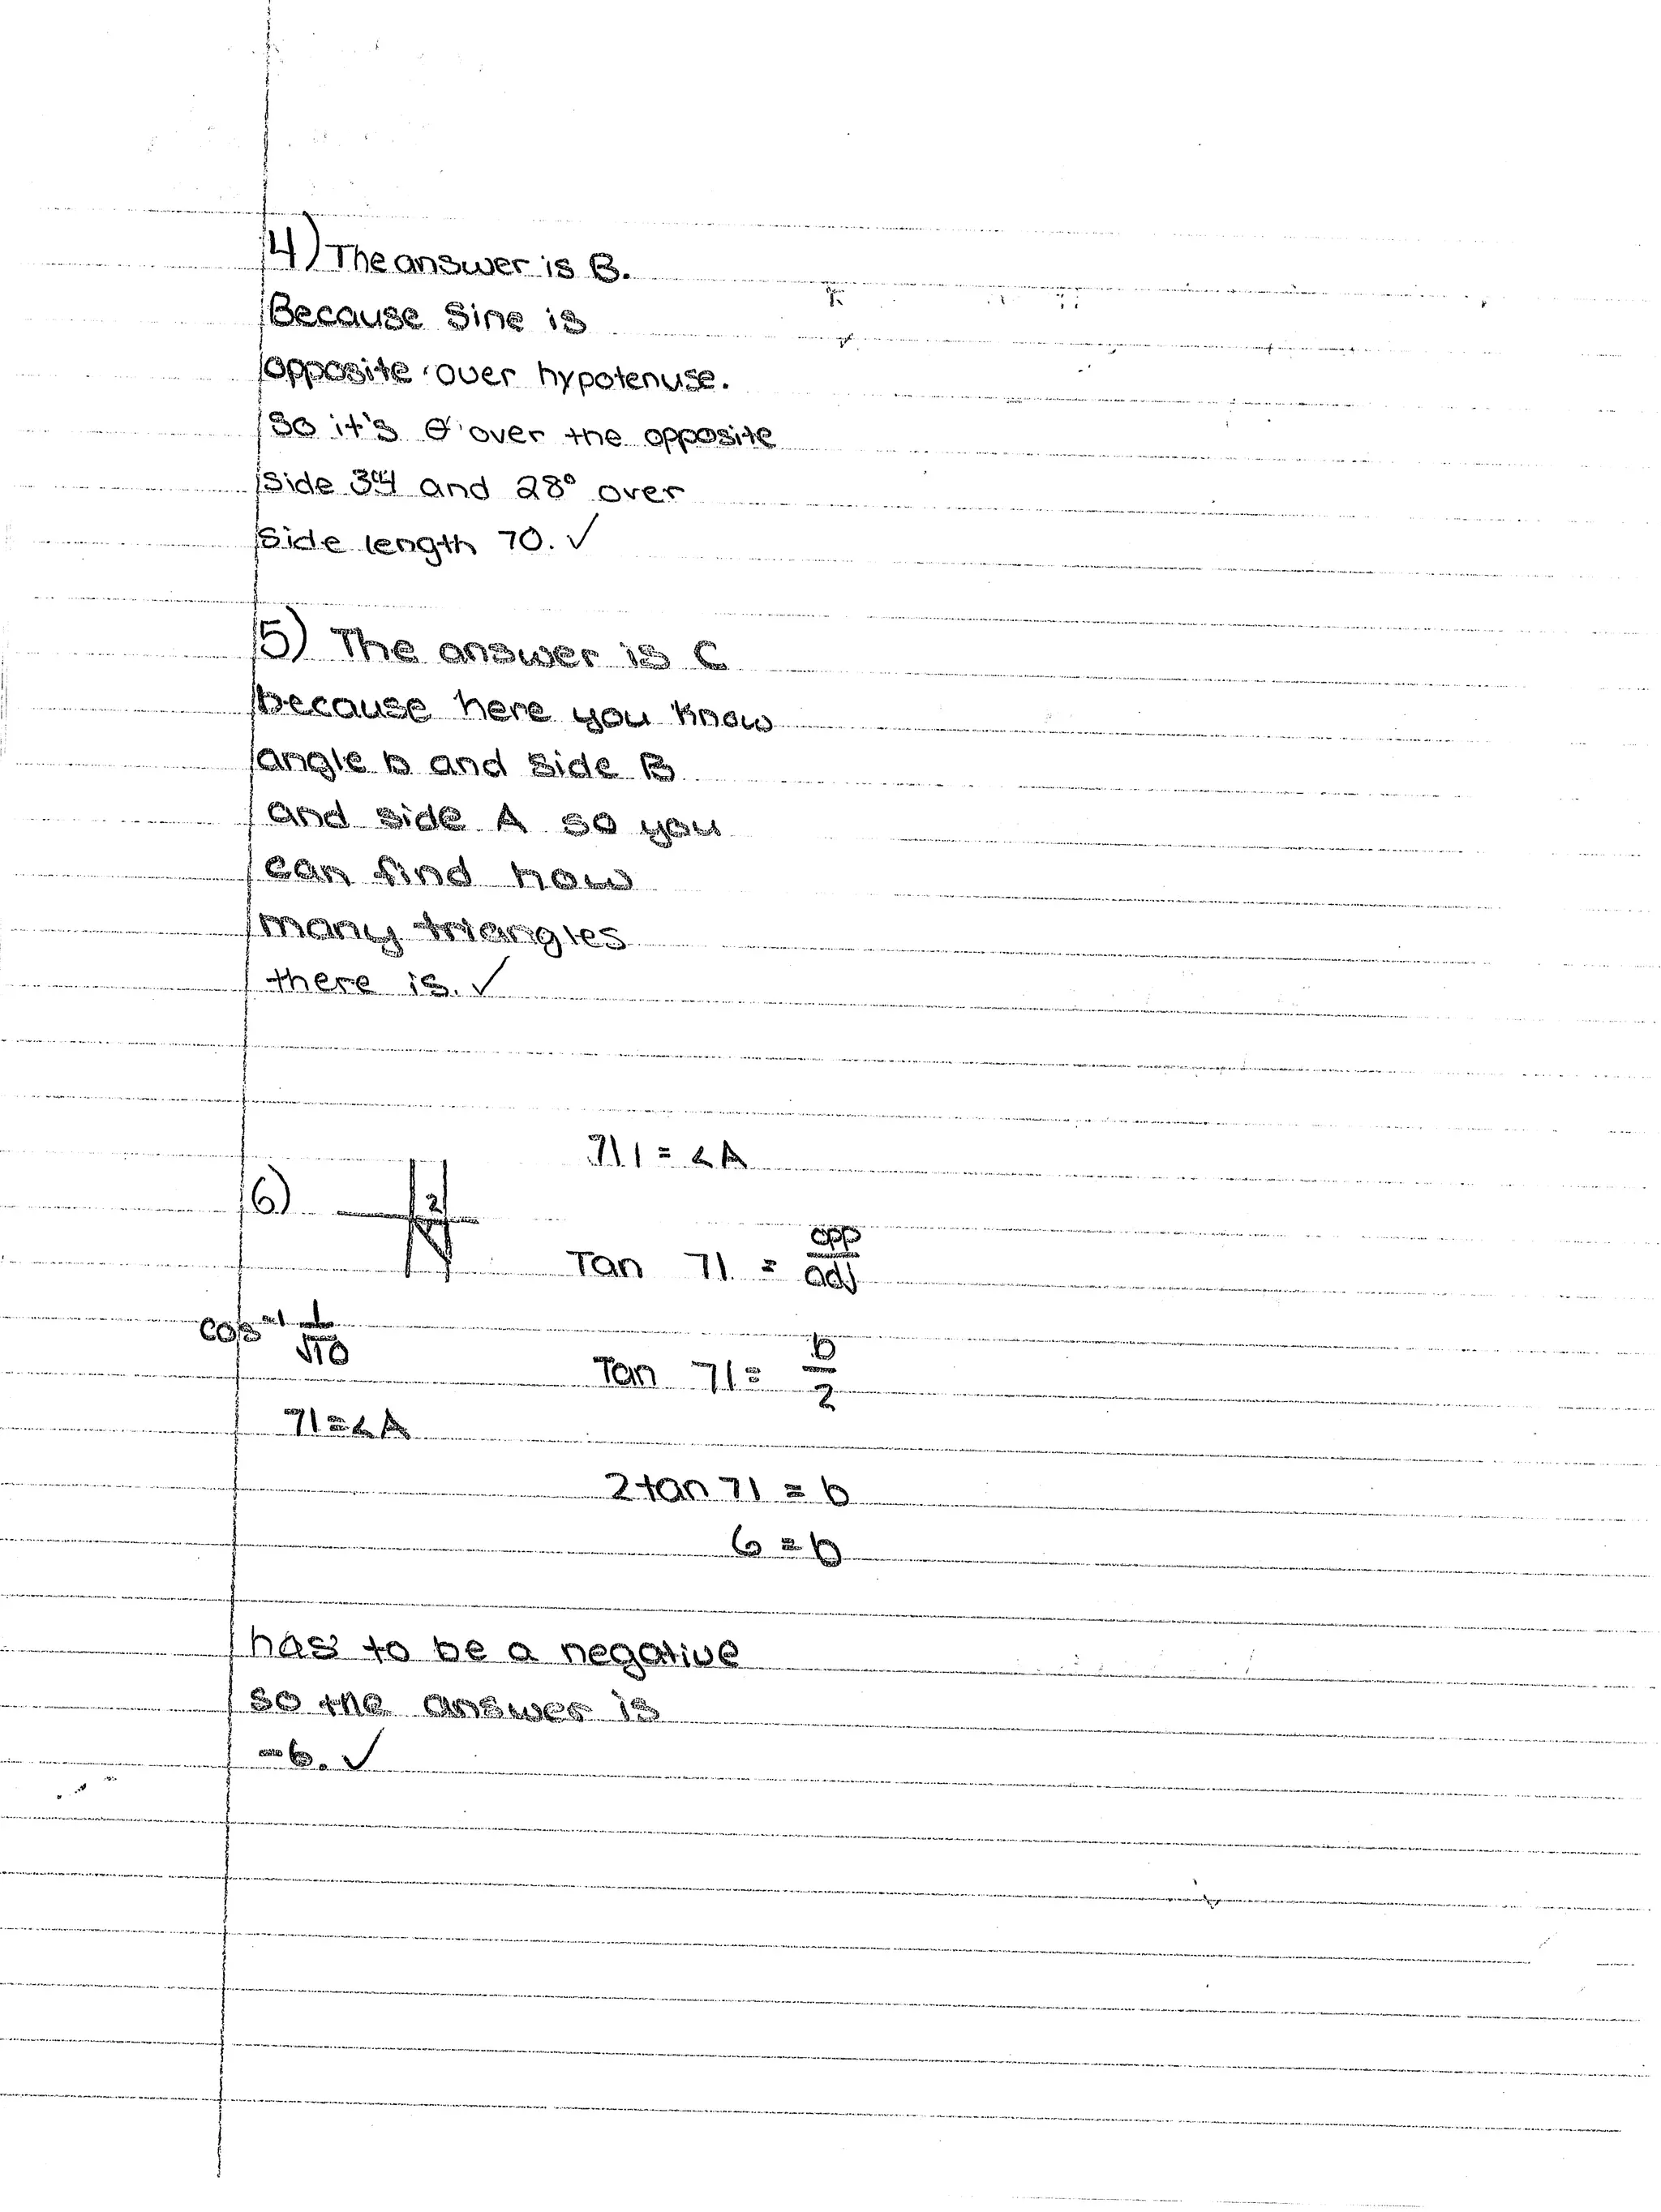 4) The answer is B.
Because Sine is
opposite over hypotenuse.
So it's θ over the opposite
side 34 and 28° over
Side length 70. ✓
5) The answer is C
because here you know
angle b and side B
and side A so you
can find how
many triangles
there is. ✓
71 = ∠A
6)
2
Tan 71 = opp/adj
cos⁻¹ 1/√10
Tan 71 = b/2
71 = ∠A
2 tan 71 = b
6 = b
has to be a negative
so the answer is
-6. ✓